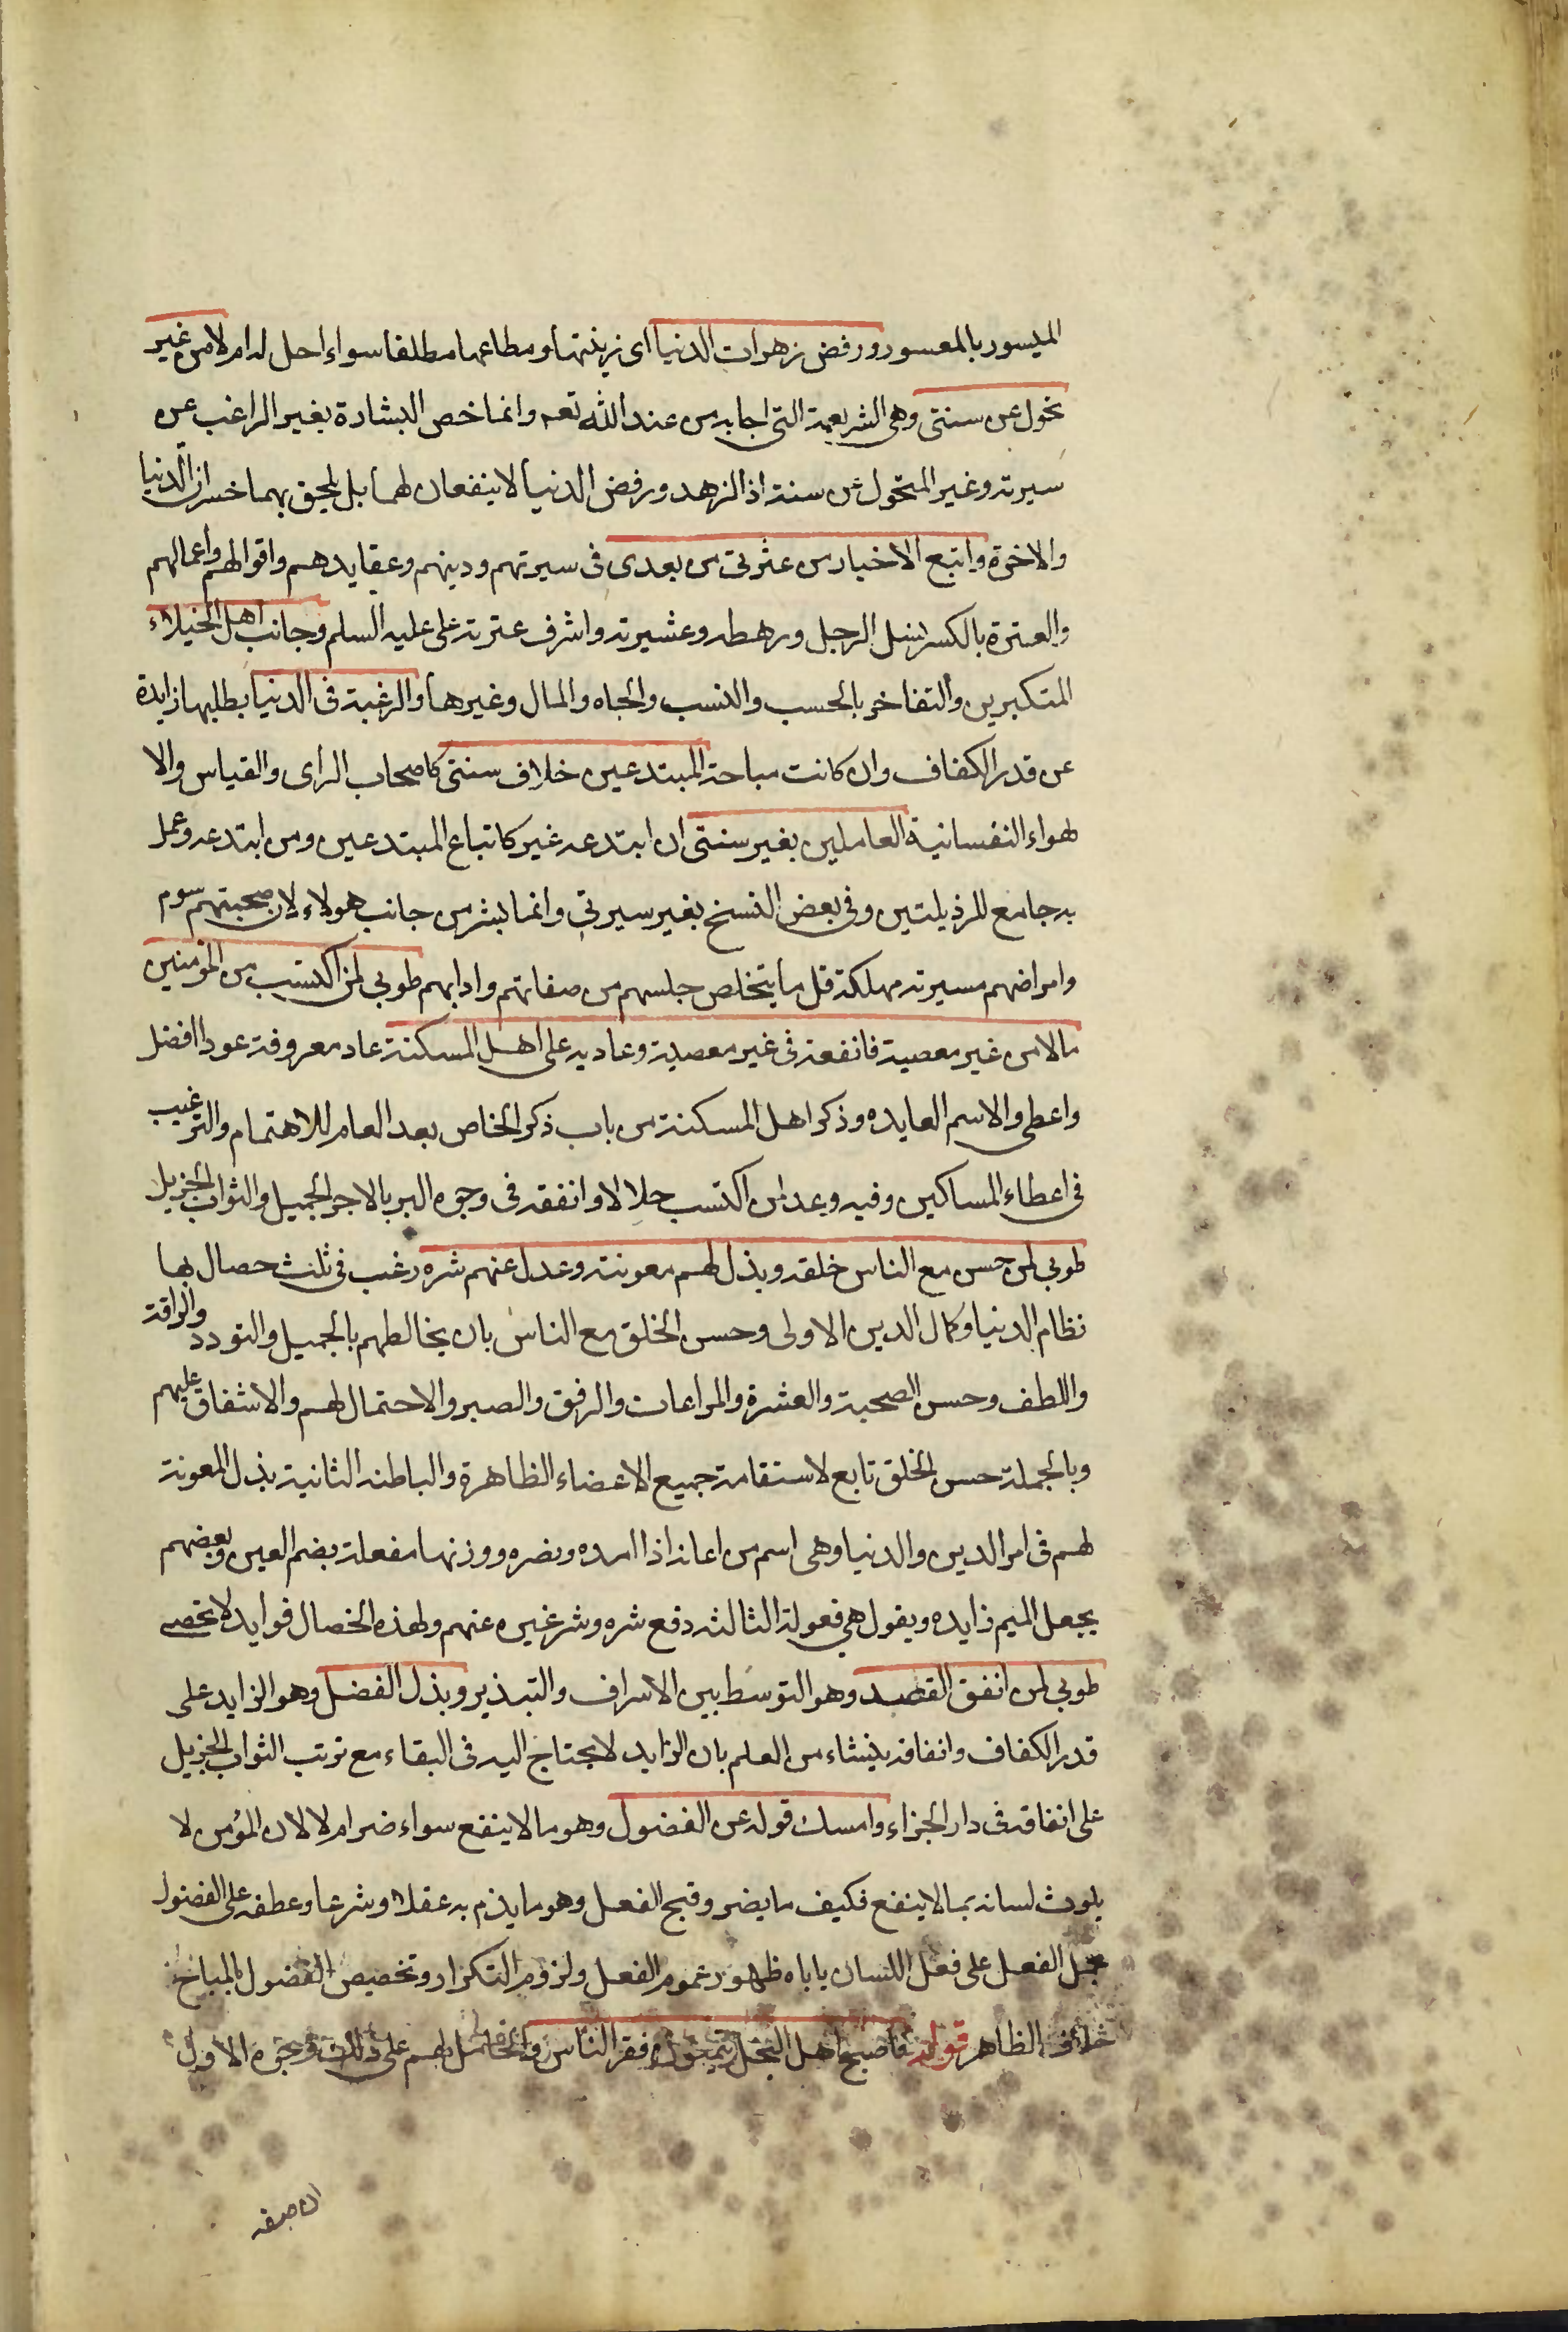 الميسور بالمعسور ورفض زهرات الدنيا اى زينتها ومطاعمها مطلقا سواء احل له ام لا من غير
تحول عن سنتى وهى الشريعة التى اجابه من عند الله تعه وانما خص البشارة بغير الراغب عن
سيرته وغير المتحول عن سنته اذ الزهد ورفض الدنيا لا ينفعان لهما بل يلحق بهما خسران الدنيا
والاخرة واتبع الاخيار من عترتى من بعدى فى سيرتهم ودينهم وعقايدهم واقوالهم واعمالهم
والعترة بالكسر نسل الرجل ورهطه وعشيرته واشرف عترته على عليه السلم وجانب اهل الخيلاء
المتكبرين والتفاخر بالحسب والنسب والجاه والمال وغيرها والرغبة فى الدنيا بطلبها زايدة
عن قدر الكفاف وان كانت مباحة المبتدعين خلاف سنتى كاصحاب الراى والقياس والا
هواء النفسانية العاملين بغير سنتى ان ابتدعه غير كاتباع المبتدعين ومن ابتدعه وعمل
به جامع للرذيلتين وفى بعض النسخ بغير سيرتى وانما بشر من جانب هولاء لان صحبتهم سموم
وامراضهم مسيرته مهلكة قل ما يتخلص جلسهم من صفاتهم وادابهم طوبى لمن اكتسب من المؤمنين
مالا من غير معصية فانفعه فى غير معصية وعاد به على اهل المسكنة عاد معروفه عودا افضل
واعطى والاسم العايده وذكر اهل المسكنة من باب ذكر الخاص بعد العام للاهتمام والترغيب
فى اعطاء المساكين وفيه وعد لمن اكتسب حلالا وانفقه فى وجوه البر بالاجر الجميل والثواب الجزيل
طوبى لمن حسن مع الناس خلقه وبذل لهم معونته وعدل عنهم شره رغب فى ثلث خصال بها
نظام الدنيا وكمال الدين الاولى وحسن الخلق مع الناس بان يخالطهم بالجميل والتودد والرافة
واللطف وحسن الصحبة والعشرة والمراعات والرفق والصبر والاحتمال لهم والاشفاق عليهم
وبالجملة حسن الخلق تابع لاستقامة جميع الاعضاء الظاهرة والباطنه الثانية بذل المعونة
لهم فى امر الدين والدنيا وهى اسم من اعانه اذا امده ونصره ووزنها مفعلة بضم العين وبعضهم
يجعل الميم زايده ويقول هى فعولة الثالثه دفع شره وشر غيره عنهم ولهذه الخصال فوايد لا تحصى
طوبى لمن انفق القصد وهو التوسط بين الاسراف والتبذير وبذل الفضل وهو الزايد على
قدر الكفاف وانفاقه ينشاء من العلم بان الزايد لا يحتاج اليه فى البقاء مع ترتب الثواب الجزيل
على انفاقه فى دار الجزاء وامسك قوله عن الفضول وهو ما لا ينفع سواء ضر ام لا لان المؤمن لا
يلوث لسانه بما لا ينفع فكيف ما يضر وقبح الفعل وهو ما يذم به عقلا وشرعا وعطفه على الفضول
الفعل على فعل اللسان ياباه ظهور عموم الفعل ولزوم التكرار وتخصيص الفضول بالمباح
خلاف الظاهر قوله فاصبح اهل البخل يتمنون فقر الناس والحامل لهم على ذلك وجوه الاول
ان صفه